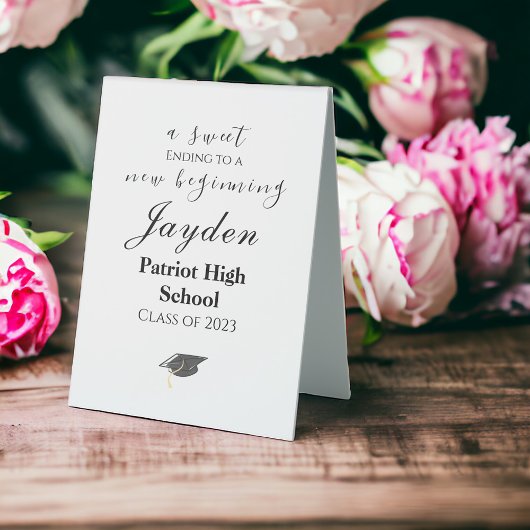 a sweet
Ending to a
new beginning
Jayden
Patriot High
School
Class of 2023